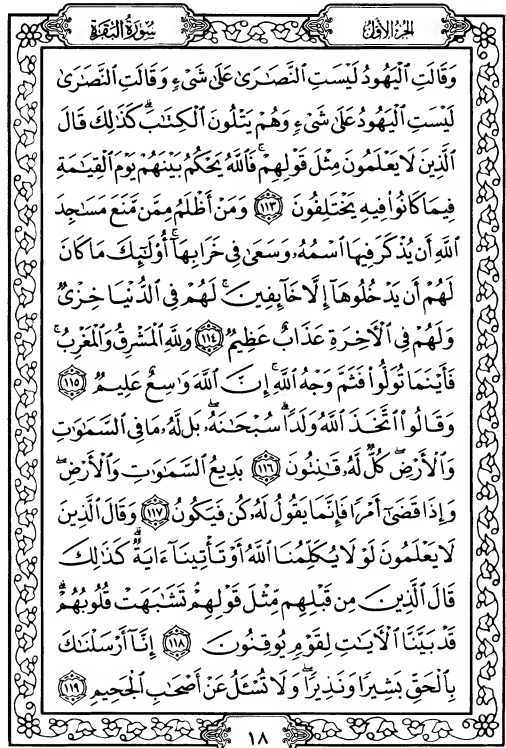 سُورَةُ البَقَرَةِ
الجُزءُ الأوَّلُ
وَقَالَتِ ٱلْيَهُودُ لَيْسَتِ ٱلنَّصَٰرَىٰ عَلَىٰ شَىْءٍ وَقَالَتِ ٱلنَّصَٰرَىٰ
لَيْسَتِ ٱلْيَهُودُ عَلَىٰ شَىْءٍ وَهُمْ يَتْلُونَ ٱلْكِتَٰبَۗ كَذَٰلِكَ قَالَ
ٱلَّذِينَ لَا يَعْلَمُونَ مِثْلَ قَوْلِهِمْۚ فَٱللَّهُ يَحْكُمُ بَيْنَهُمْ يَوْمَ ٱلْقِيَٰمَةِ
فِيمَا كَانُوا۟ فِيهِ يَخْتَلِفُونَ ١١٣ وَمَنْ أَظْلَمُ مِمَّن مَّنَعَ مَسَٰجِدَ
ٱللَّهِ أَن يُذْكَرَ فِيهَا ٱسْمُهُۥ وَسَعَىٰ فِى خَرَابِهَآۚ أُو۟لَٰٓئِكَ مَا كَانَ
لَهُمْ أَن يَدْخُلُوهَآ إِلَّا خَآئِفِينَۚ لَهُمْ فِى ٱلدُّنْيَا خِزْىٌ
وَلَهُمْ فِى ٱلْءَاخِرَةِ عَذَابٌ عَظِيمٌ ١١٤ وَلِلَّهِ ٱلْمَشْرِقُ وَٱلْمَغْرِبُۚ
فَأَيْنَمَا تُوَلُّوا۟ فَثَمَّ وَجْهُ ٱللَّهِۚ إِنَّ ٱللَّهَ وَٰسِعٌ عَلِيمٌ ١١٥
وَقَالُوا۟ ٱتَّخَذَ ٱللَّهُ وَلَدًاۗ سُبْحَٰنَهُۥۖ بَل لَّهُۥ مَا فِى ٱلسَّمَٰوَٰتِ
وَٱلْأَرْضِۖ كُلٌّ لَّهُۥ قَٰنِتُونَ ١١٦ بَدِيعُ ٱلسَّمَٰوَٰتِ وَٱلْأَرْضِۖ
وَإِذَا قَضَىٰٓ أَمْرًا فَإِنَّمَا يَقُولُ لَهُۥ كُن فَيَكُونُ ١١٧ وَقَالَ ٱلَّذِينَ
لَا يَعْلَمُونَ لَوْلَا يُكَلِّمُنَا ٱللَّهُ أَوْ تَأْتِينَآ ءَايَةٌۗ كَذَٰلِكَ
قَالَ ٱلَّذِينَ مِن قَبْلِهِم مِّثْلَ قَوْلِهِمْۘ تَشَٰبَهَتْ قُلُوبُهُمْۗ
قَدْ بَيَّنَّا ٱلْءَايَٰتِ لِقَوْمٍ يُوقِنُونَ ١١٨ إِنَّآ أَرْسَلْنَٰكَ
بِٱلْحَقِّ بَشِيرًا وَنَذِيرًاۖ وَلَا تُسْـَٔلُ عَنْ أَصْحَٰبِ ٱلْجَحِيمِ ١١٩
١٨